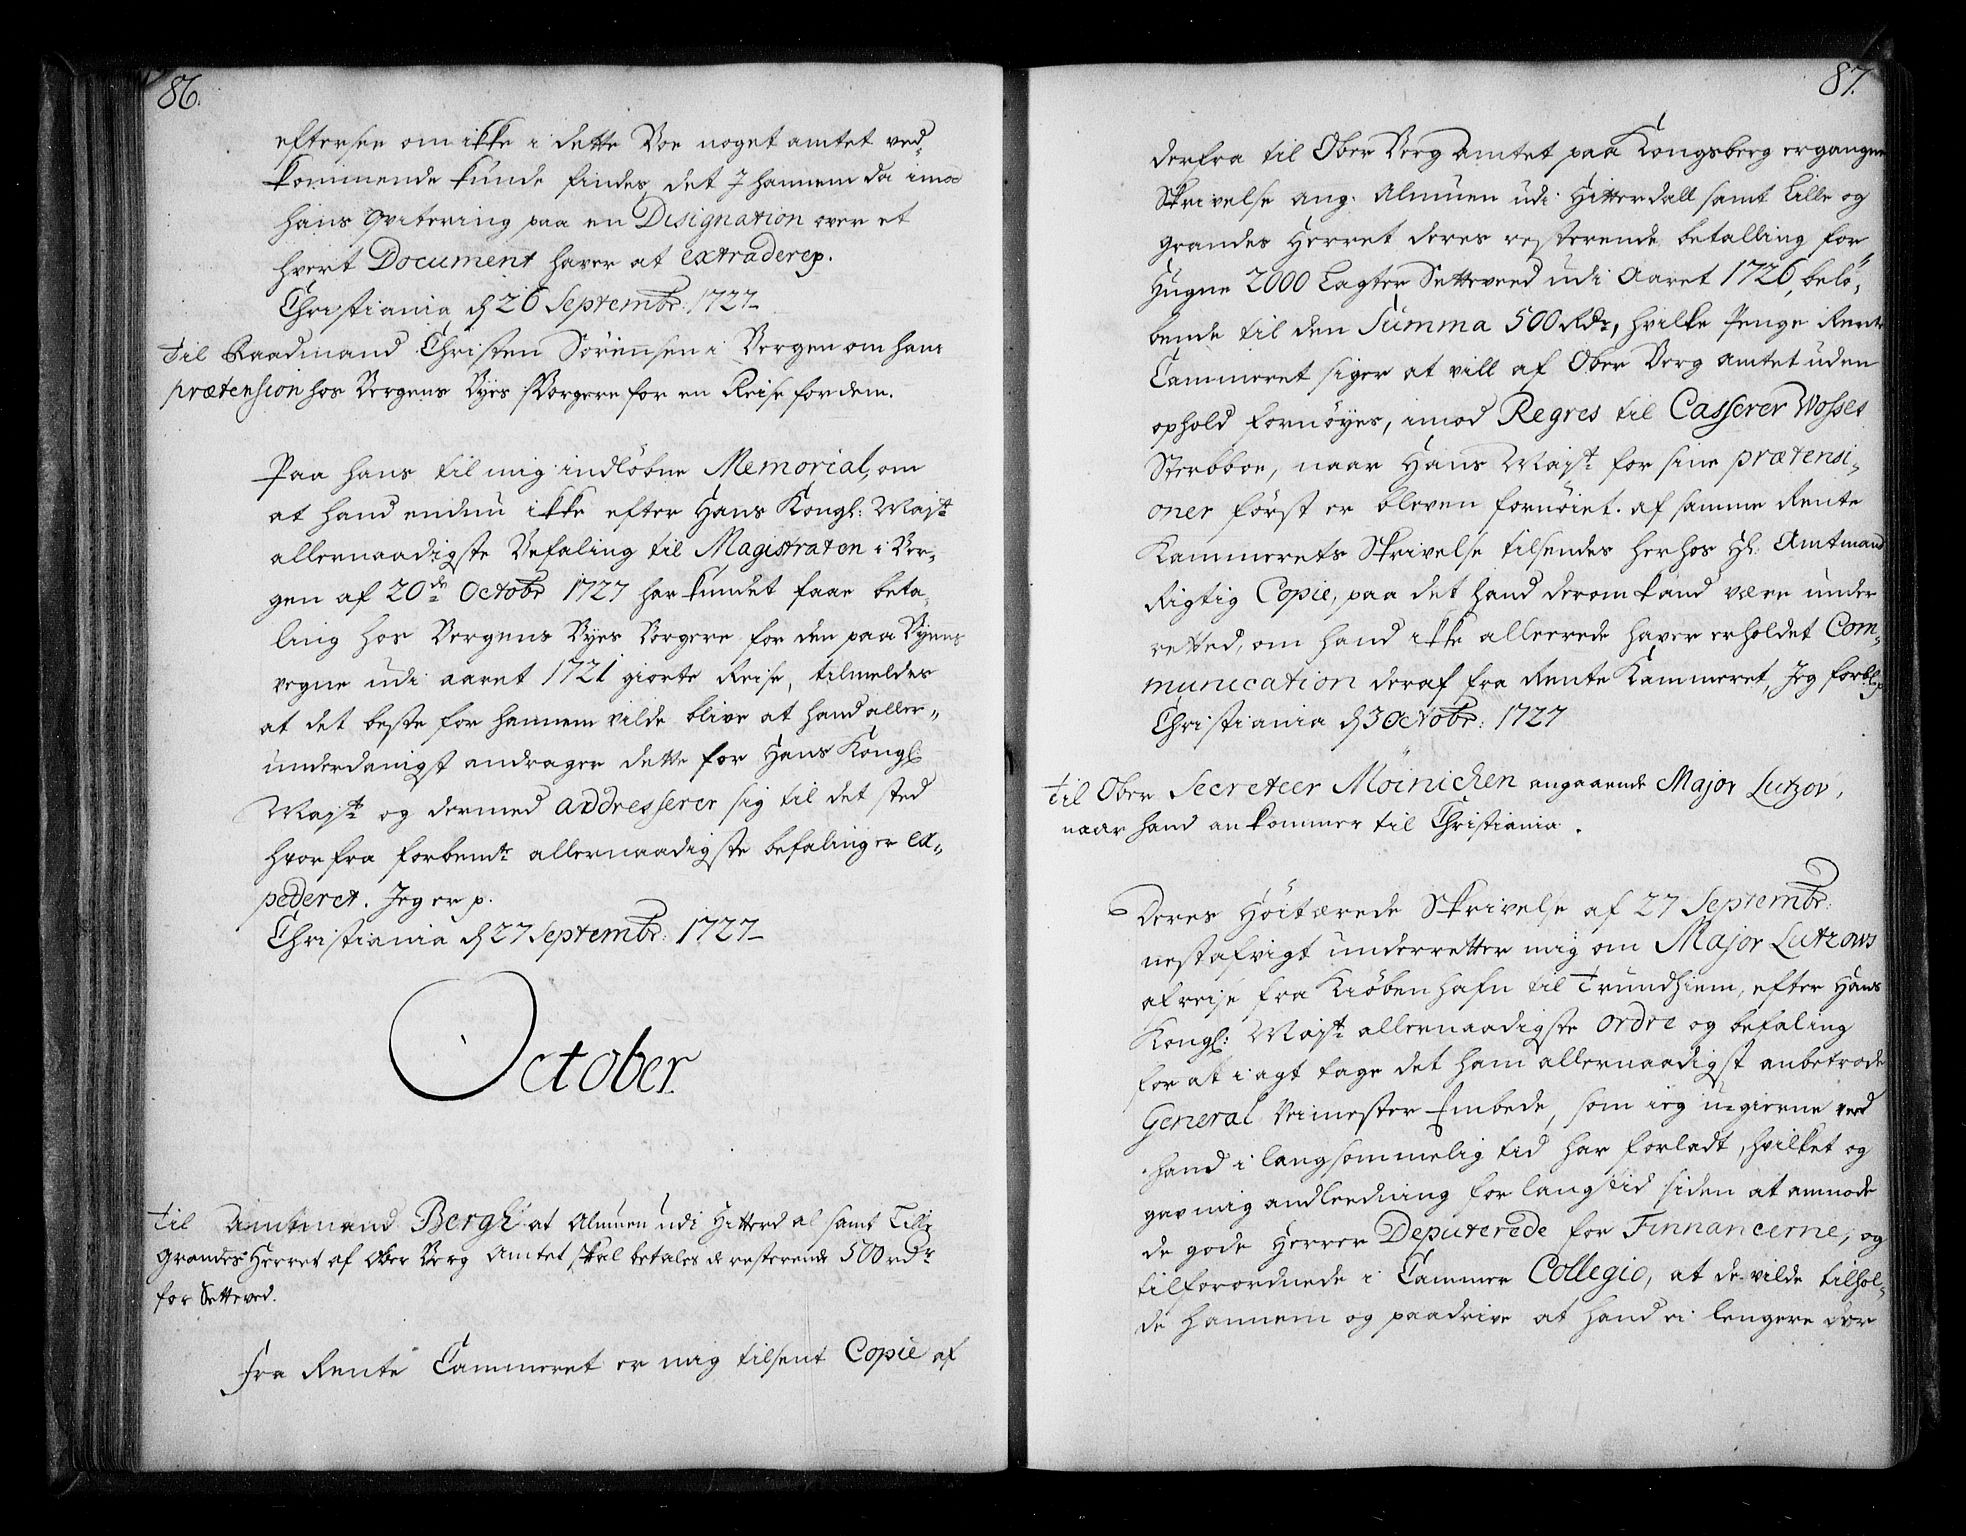 86.
eftersee om ikke i dette Boe noget amtet ved-
kommende kunde findes, det J hannem da imod
hans qvitering paa en Designation over et
hvert Document haver at extradere p.
Christiania d 26 Septembr: 1727
Til Raadmand Christen Sörensen i Bergen om hans
prætension hos Bergens Byes Borgere for en Reise for dem.
Paa hans til mig indlöbne Memorial, om
at hand endnu ikke efter Hans Kongl: Majt:
allernaadigste Befaling til Magistraten i Ber-
gen af 20de Octobr 1727 har kundet faae beta-
ling hos Bergens Byes Borgere for den paa Byens
vegne udi aaret 1721 giorte Reise, tilmeldes
at det beste for hannem vilde blive at hand aller-
underdanigst andrager dette for Hans Kongl:
Majt: og dermed addresserer sig til det sted
hvorfra forbemte: allernaadigste befaling er ex-
pederet. Jeg er p.
Christiania d 27 Septembr: 1727
October.
Til Amtmand Bergh at Almuen udi Hitterdal samt Lille
Grandes Herret af Ober Berg Amtet skal betales de resterende 500 rdr
for Setteved.
Fra Rente Cammeret er mig tilsent Copie af
87.
derfra til Ober Berg Amtet paa Kongsberg ergangne
Skrivelse ang. Almuen udi Hitterdall samt Lille og
Grandes Herret deres resterende betalling for
Hugne 2000 Lagter Setteveed udi Aaret 1726, belö-
bende til den Summa 500 Rdr, hvilke Penge Rente
Cammeret siger at vill af Ober Berg Amtet uden
ophold fornöyes, imod Regres til Casserer Wosses
Sterboe, naar Hans Majt: for sine prætensi-
oner först er bleven fornöiet. af samme Rente
Kammerets Skrivelse tilsendes herhos Hl: Amtmand
Rigtig Copie, paa det hand derom kand være under
retted, om hand ikke allerede haver erholdet Com-
munication deraf fra Rente Kammeret, Jeg forbl: p
Christiania d 3 Octobr: 1727
Til Ober Secreteer Möinichen angaaende Major Lutzov,
naar hand ankommer til Christiania.
Deres Höitærede Skrivelse af 27 Septembr:
nestafvigt underretter mig om Major Lutzows
afreise fra Kiöbenhafn til Trundhiem, efter Hans
Kongl: Majt: allernaadigste ordre og befaling
for at i agt tage det ham allernaadigst anbetrode
General Veimester Embede, som ieg ugierne ved
hand i langsommelig tid har forladt, hvilket og
gav mig andleedning for lang tid siden at anmode
de gode Herrer Deputerede for Finnancerne, og
tilforordnede i Cammer Collegio, at de vilde tilhol-
de hannem og paadrive at hand ei lengere der